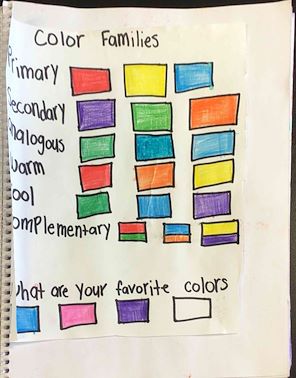 Color Families
Primary
Secondary
Analogous
Warm
ool
omplementary
hat are your favorite colors